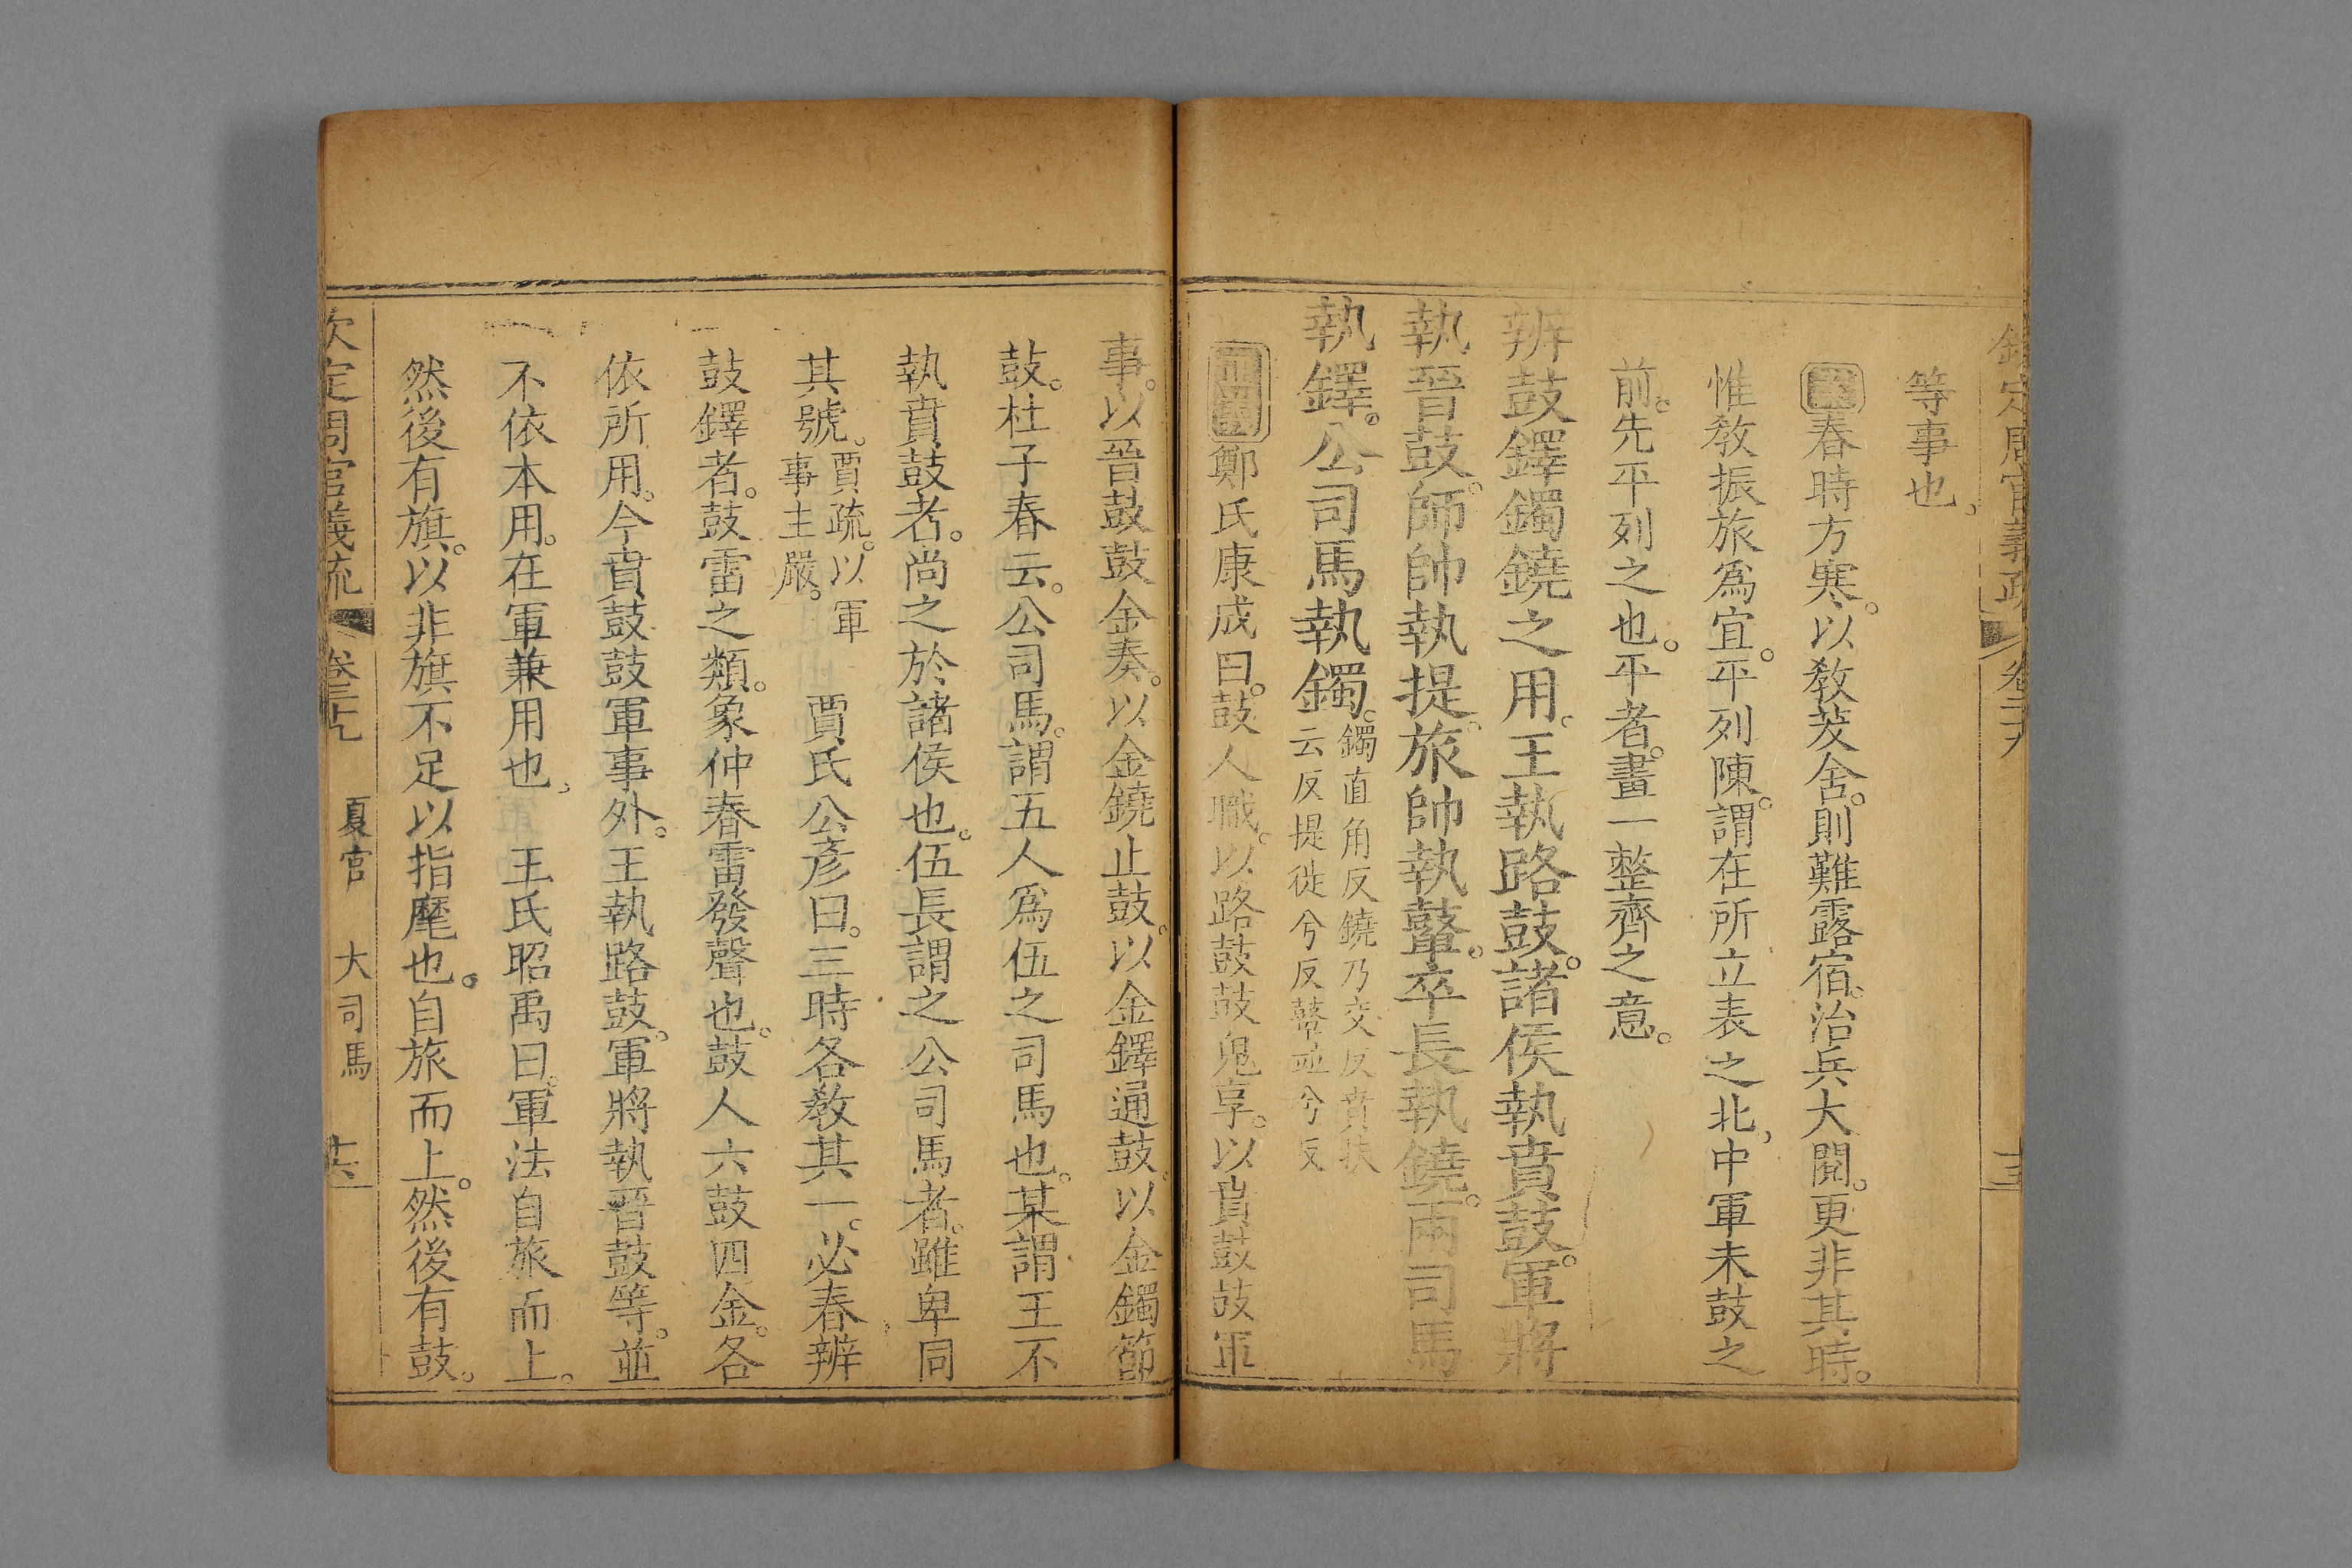 欽定周官義疏 卷二十九
等事也
案春時方寒。以教茇舍。則難露宿。治兵大閱。更非其時。
惟教振旅爲宜。平列陳。謂在所立表之北。中軍未鼓之
前。先平列之也。平者。畫一整齊之意。
辨鼓鐸鐲鐃之用。王執路鼓。諸侯執賁鼓。軍將
執晉鼓。師帥執提。旅帥執鼙。卒長執鐃。兩司馬
執鐸。公司馬執鐲。
鐲直角反鐃乃交反賁扶
云反提徙兮反鼙並兮反
鄭氏康成曰。鼓人職。以路鼓鼓鬼享。以賁鼓鼓軍
事。以晉鼓鼓金奏。以金鐃止鼓。以金鐸通鼓。以金鐲節
鼓。杜子春云。公司馬。謂五人爲伍之司馬也。某謂王不
執賁鼓者。尚之於諸侯也。伍長謂之公司馬者。雖卑同
其號。
賈疏。以軍
事主嚴。
賈氏公彥曰。三時各教其一。必春辨
鼓鐸者。鼓雷之類。象仲春雷發聲也。鼓人六鼓四金。各
依所用。今賁鼓鼓軍事外。王執路鼓。軍將執晉鼓等。並
不依本用。在軍兼用也。
王氏昭禹曰。軍法自旅而上。
然後有旗。以非旗不足以指麾也。自旅而上。然後有鼓。
欽定周官義疏 卷二十九 夏官 大司馬